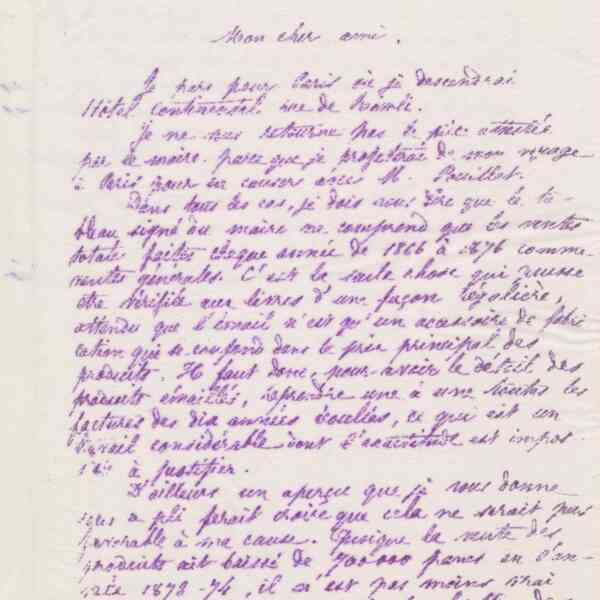 Mon cher ami.
Je pars pour Paris où je descendrai
Hôtel Continental rue de Rivoli.
Je ne vous retourne pas la pièce attestée
par le maire parce que je profiterai de mon voyage
à Paris pour en causer avec M. Pouillet.
Dans tous les cas, je dois vous dire que le ta-
bleau signé du maire ne comprend que les ventes
totales faites chaque année de 1866 à 1876 comme
ventes générales. C'est la seule chose qui puisse
être vérifiée aux livres d'une façon régulière,
attendu que l'émail n'est qu'un accessoire de fabri
cation qui se confond dans le prix principal des
produits. Il faut donc, pour avoir le détail des
produits émaillés, reprendre une à une toutes les
factures des dix années écoulées, ce qui est un
travail considérable dont l'exactitude est impos
à justifier.
D'ailleurs un aperçu que je vous donne
sous ce pli ferait croire que cela ne serait pas
favorable à ma cause. Quoique la vente des
produits ait baissé de 700000 francs en l'an-
née 1873-74, il n'est pas moins vrai